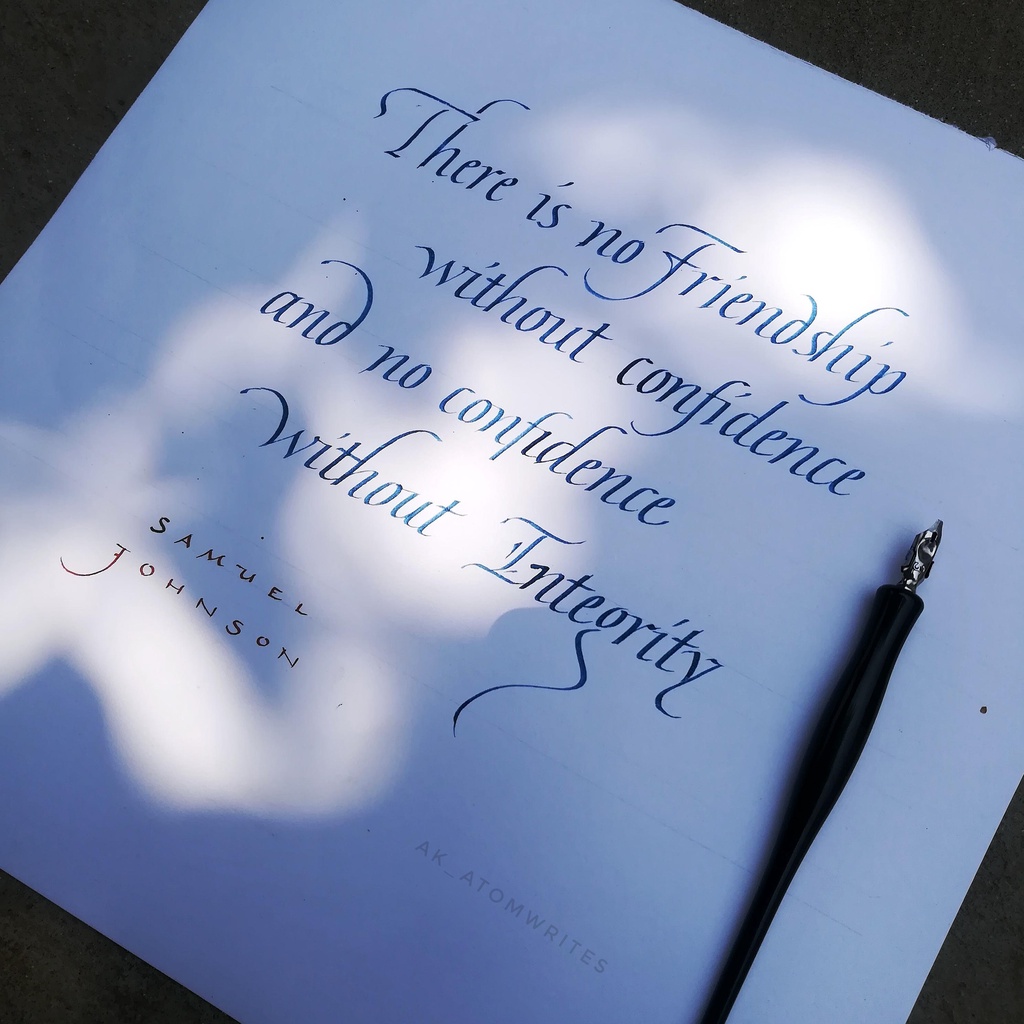 There is no Friendship
without confidence
and no confidence
Without Integrity
SAMUEL
JOHNSON
AK_ATOMWRITES